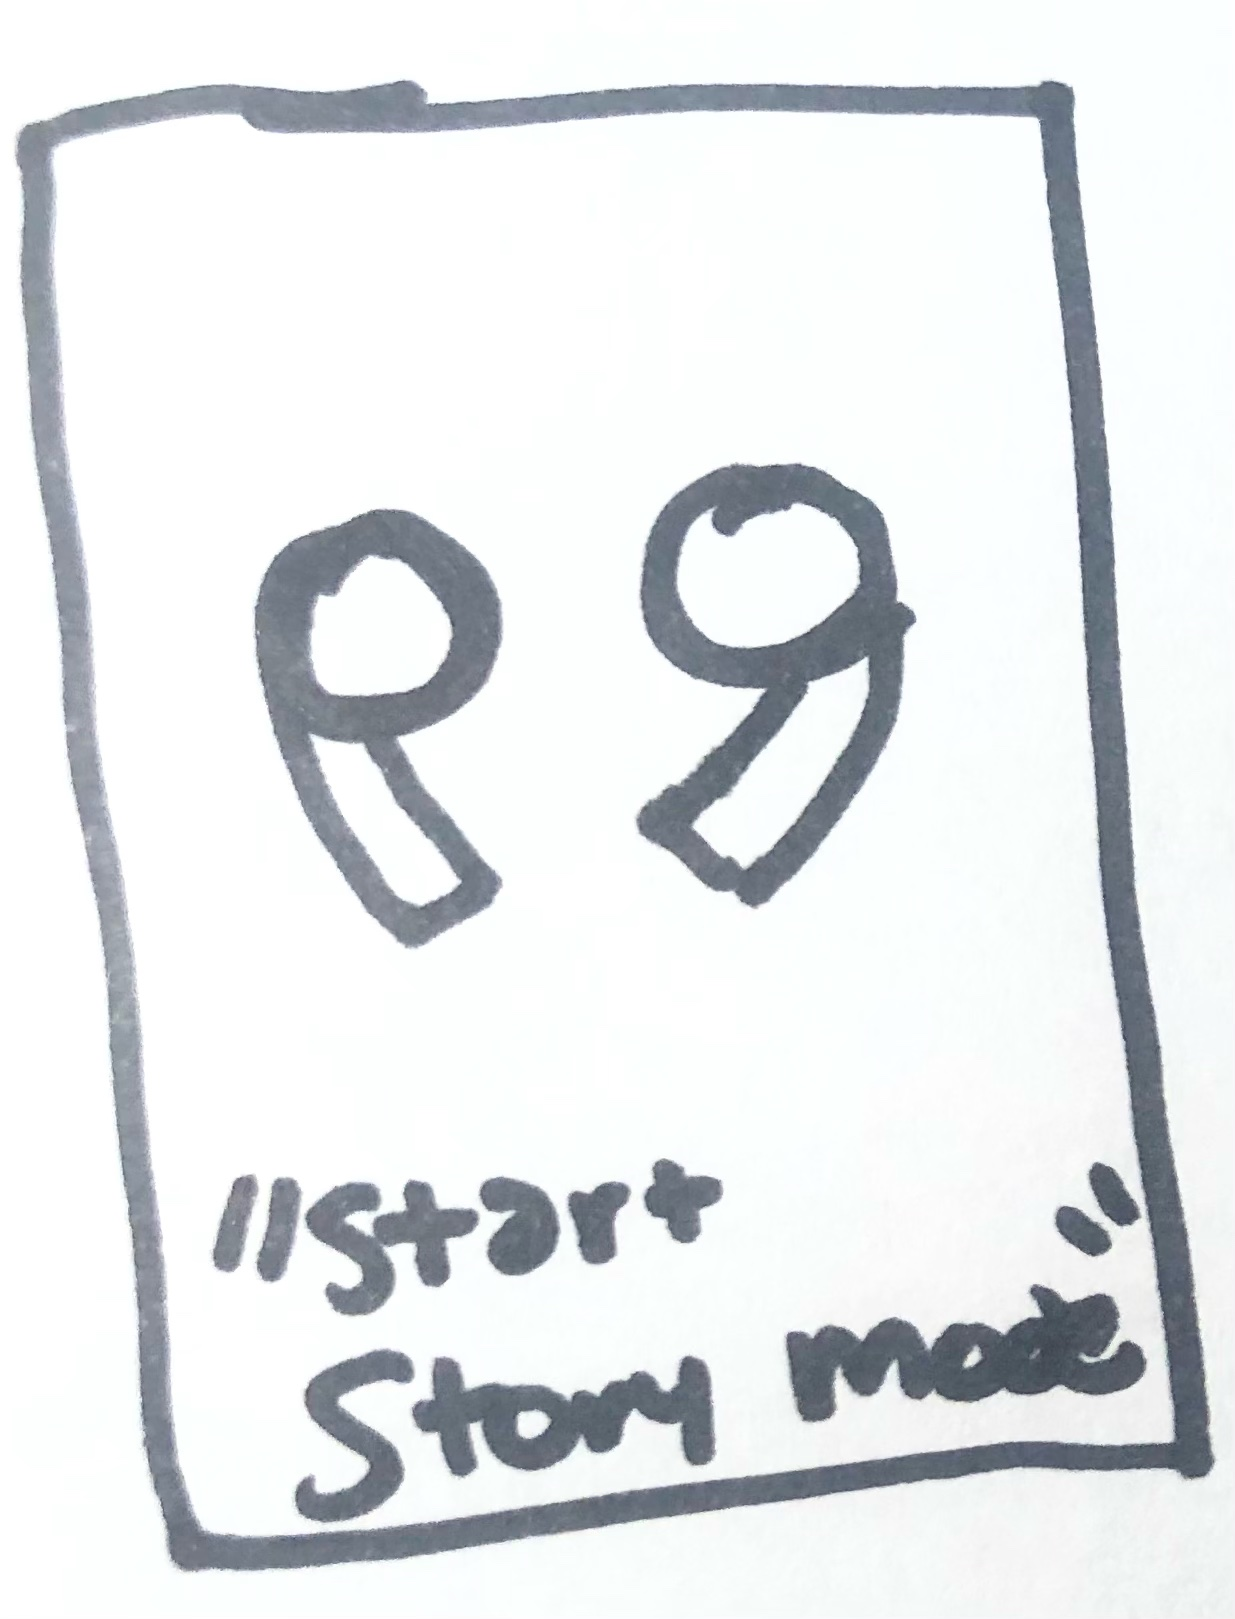 "Start
Story mode"